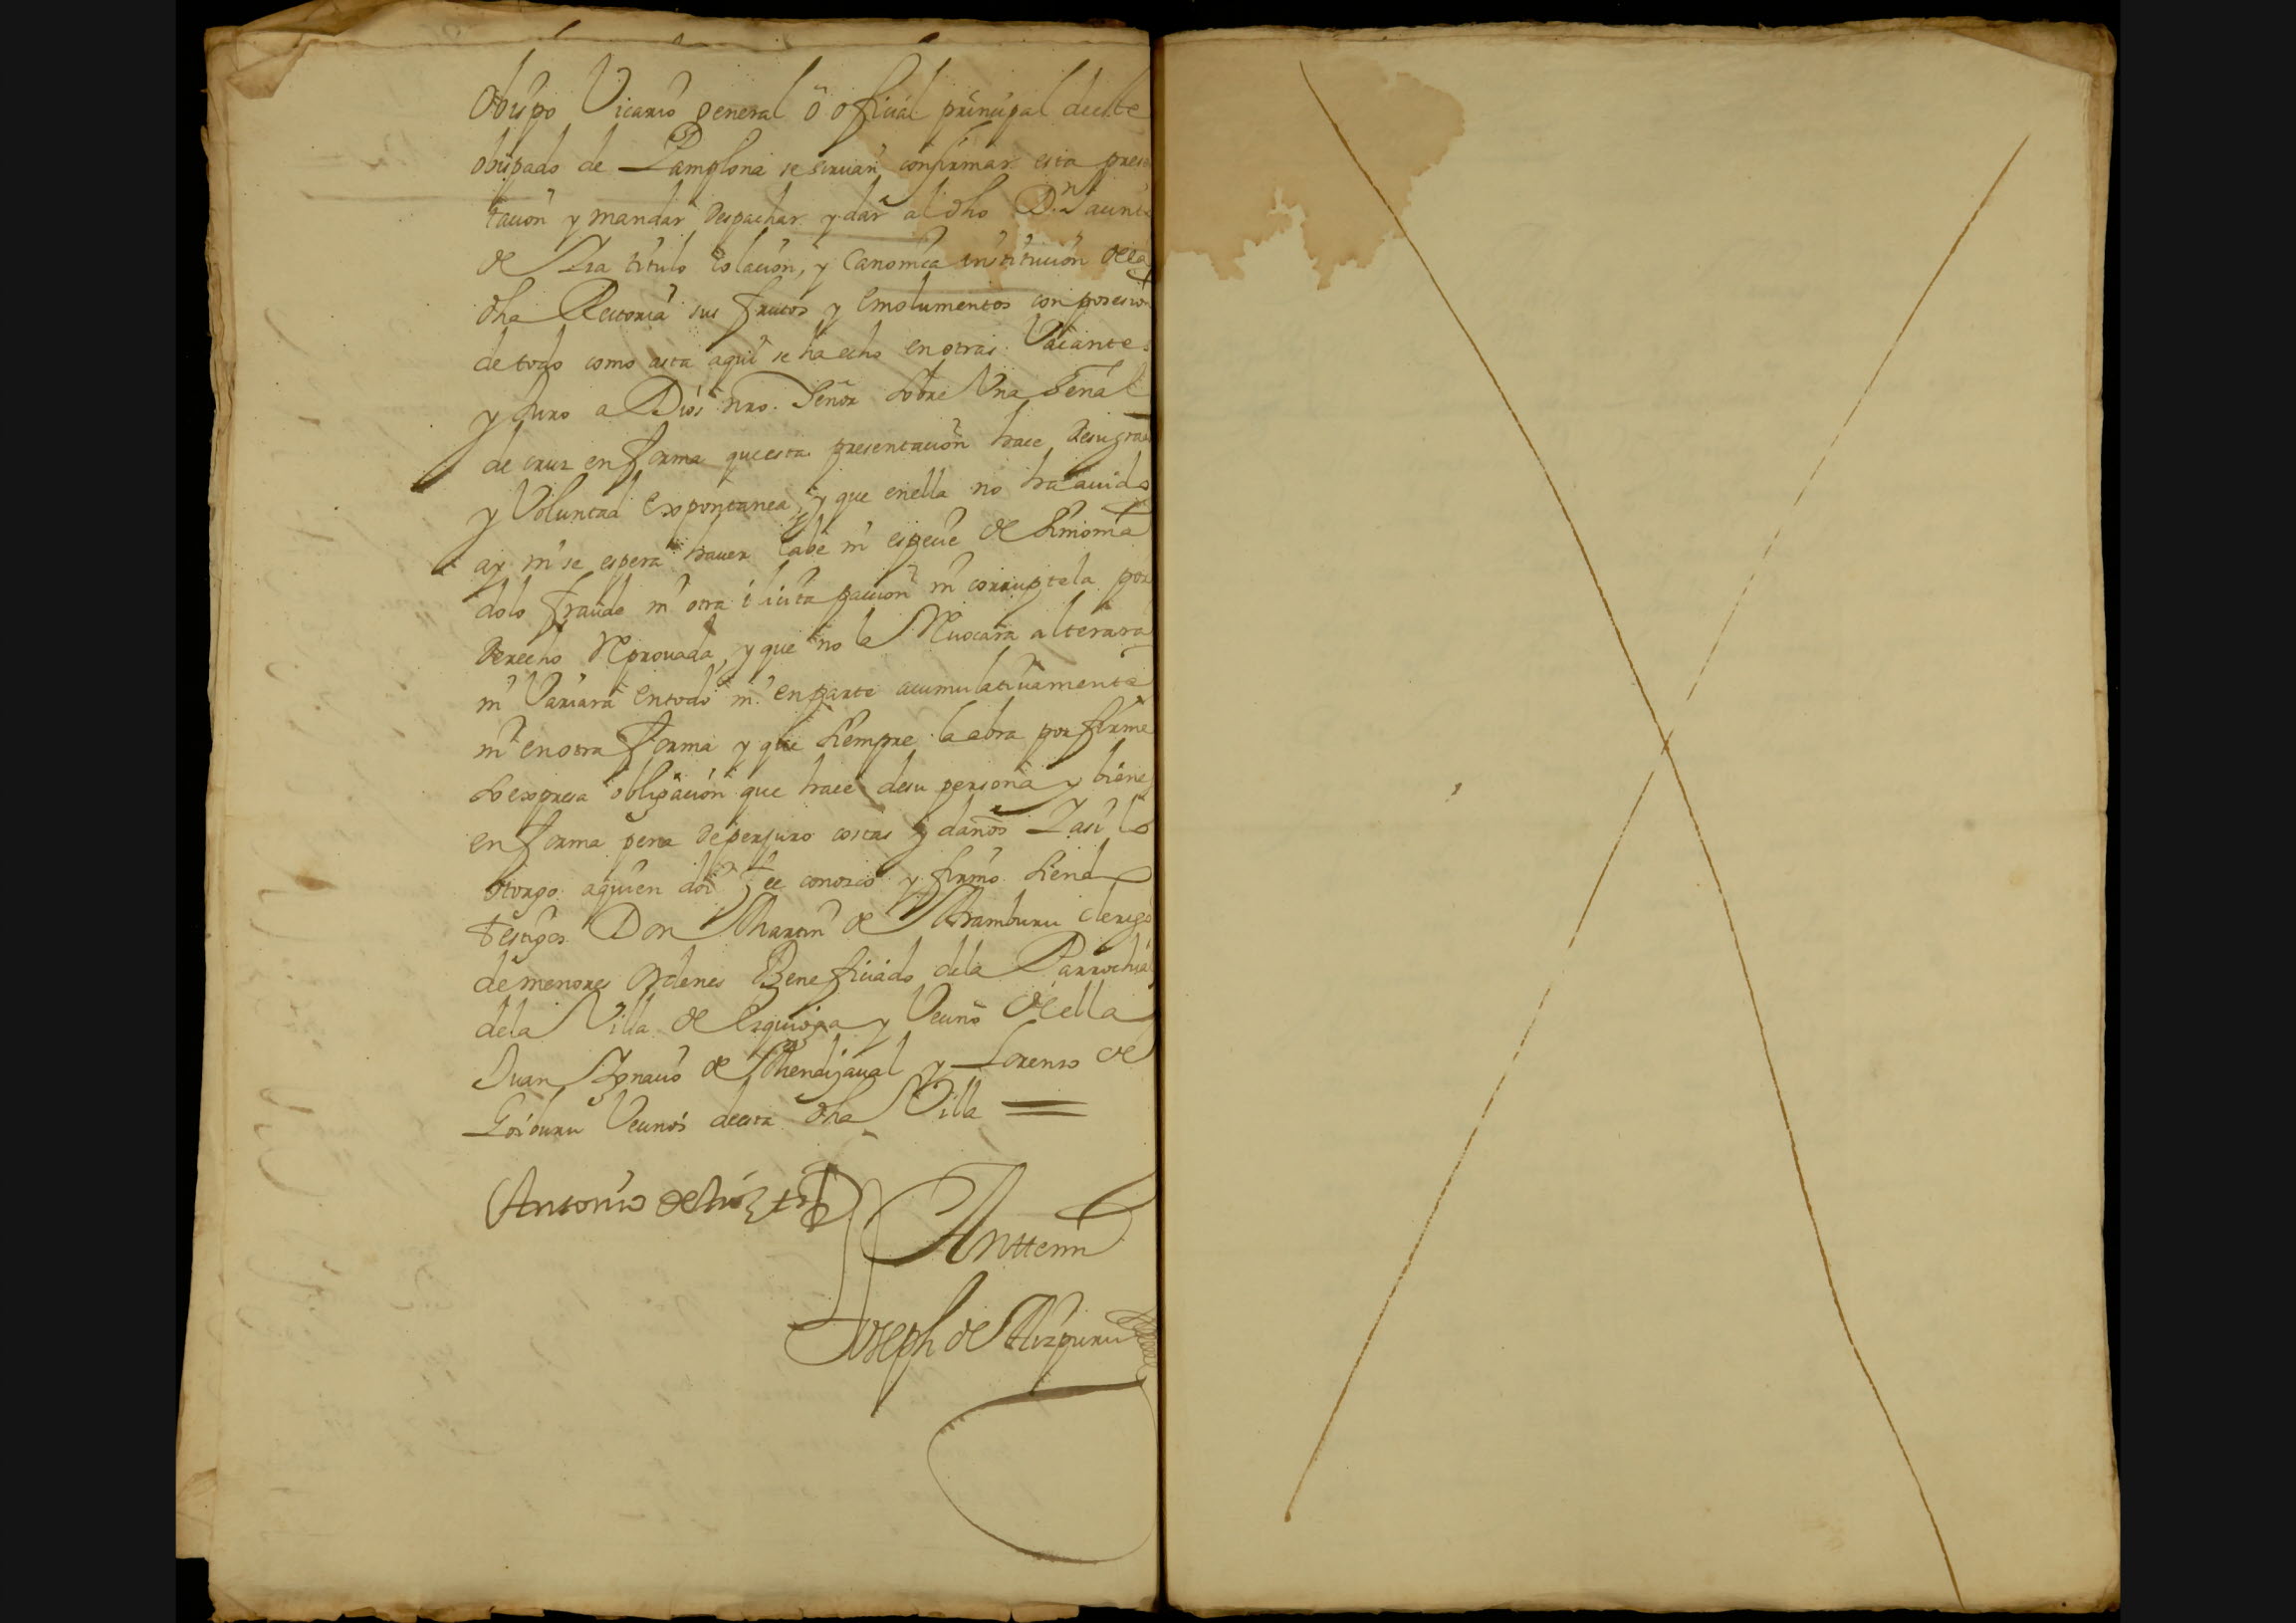 Obispo Vicario general o oficial principal deeste
obispado de Pamplona se siruan confirmar esta presen
tacion y mandar despachar y dar al dho D.n
de titulo Colacion, y Canonica institucion de la
dha Rectoria sus frutos y emolumentos con posesion
de todo como asta aqui se ha echo en otras Vacantes
y Juro a Dios nro. Señor sobre Una Señal
de cruz en forma que esta presentacion hace de su grado
y Voluntad expontanea, y que en ella no ha auido
ay ni se espera hauer labe ni especie de Simonia
dolo fraude ni otra ilicita paccion ni corruptela por
derecho reprouada, y que no la reuocara alterara
ni Variara en todo ni en parte acumulatiuamente
ni en otra forma y que siempre la abra por firme
so expresa obligacion que hace de su persona y bienes
en forma pena de perjuro costas y daños Y asi lo
otorgo aquien doi fee conozco y firmo siendo
testigos Don Martin de Aramburu clerigo
de menores ordenes Beneficiado dela Parrochial
dela Villa de Ezquioga y Vecino de ella
Juan Ignacio de Mendizaual y Lorenzo de
Goiburu Vecinos de esta dha Villa =
Antonio de
Antte mi
Joseph de Aizpuru